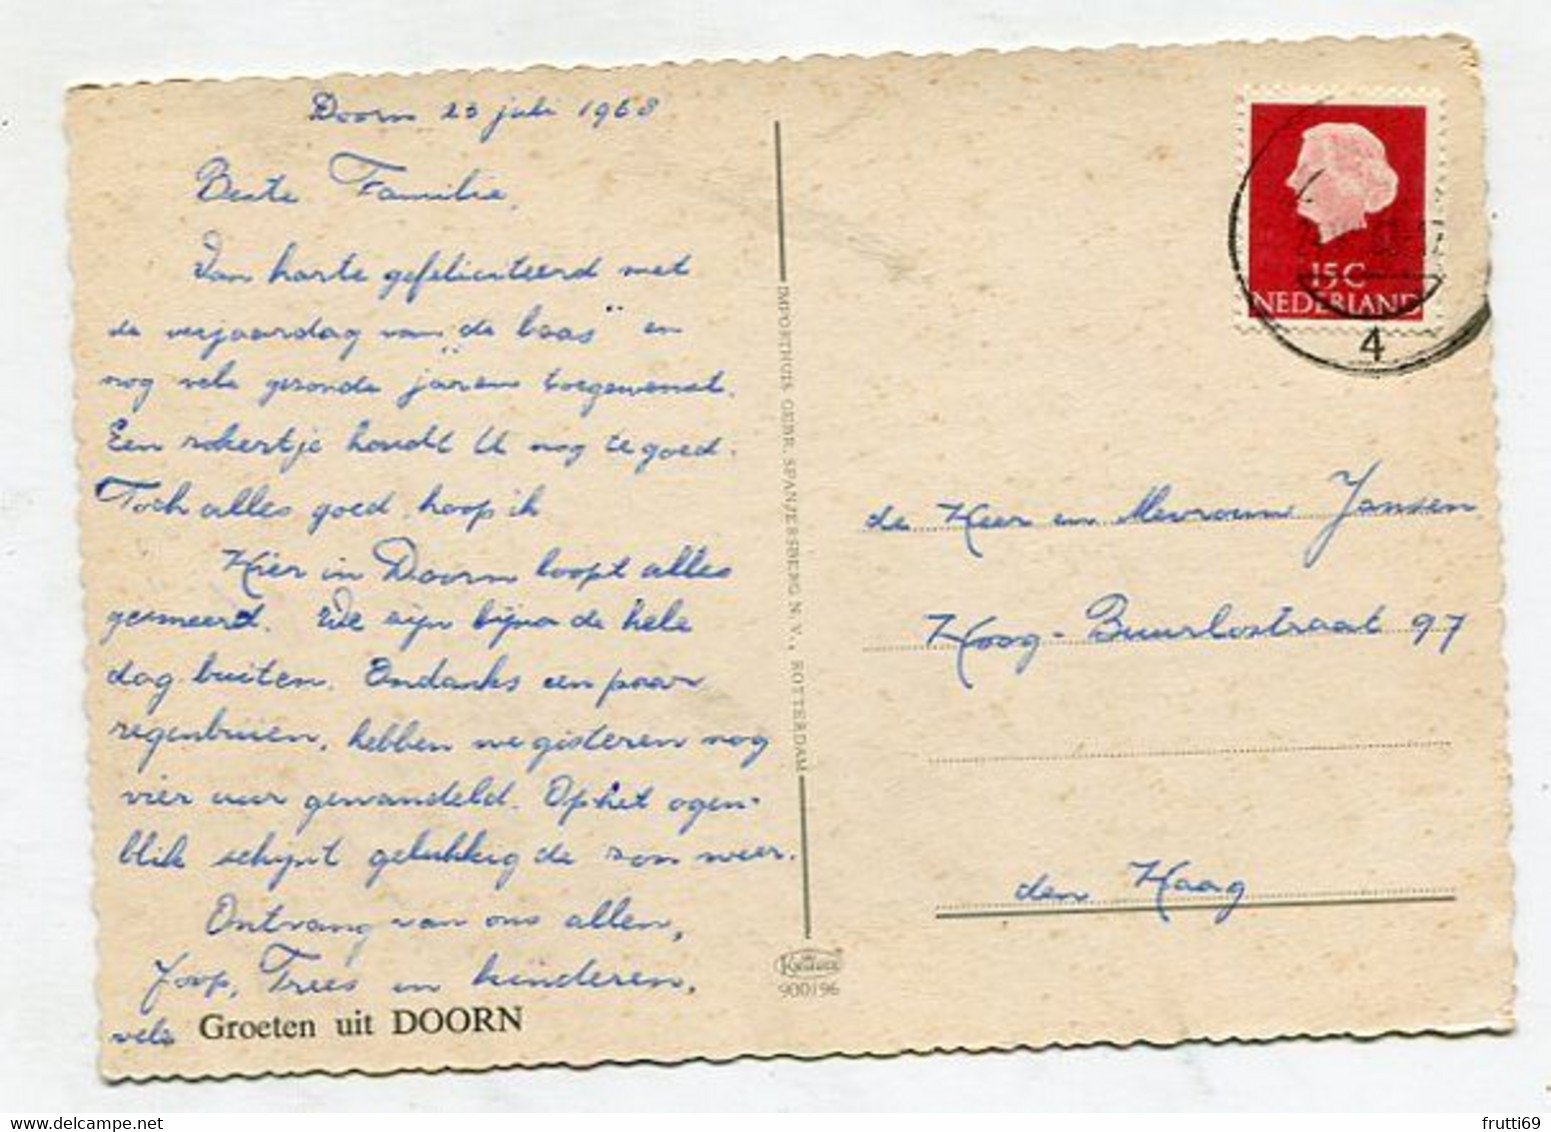 Doorn 23 juli 1968
Beste Familie,
Van harte gefeliciteerd met
de verjaardag van "de baas" en
nog vele gezonde jaren toegewenst.
Een rokertje houdt U nog te goed.
Toch alles goed, hoop ik
Hier in Doorn loopt alles
gesmeerd. We zijn bijna de hele
dag buiten. Ondanks een paar
regenbuien, hebben we gisteren nog
vier uur gewandeld. Op het ogen-
blik schijnt gelukkig de zon weer.
Ontvang van ons allen,
Joop, Trees en kinderen,
vele Groeten uit DOORN
IMPORTHUIS GEBR. SPANJERSBERG N.V., ROTTERDAM
900196
15C
NEDERLAND
4
de Heer en Mevrouw Jansen
Hoog-Buurlostraat 97
den Haag
frutti69